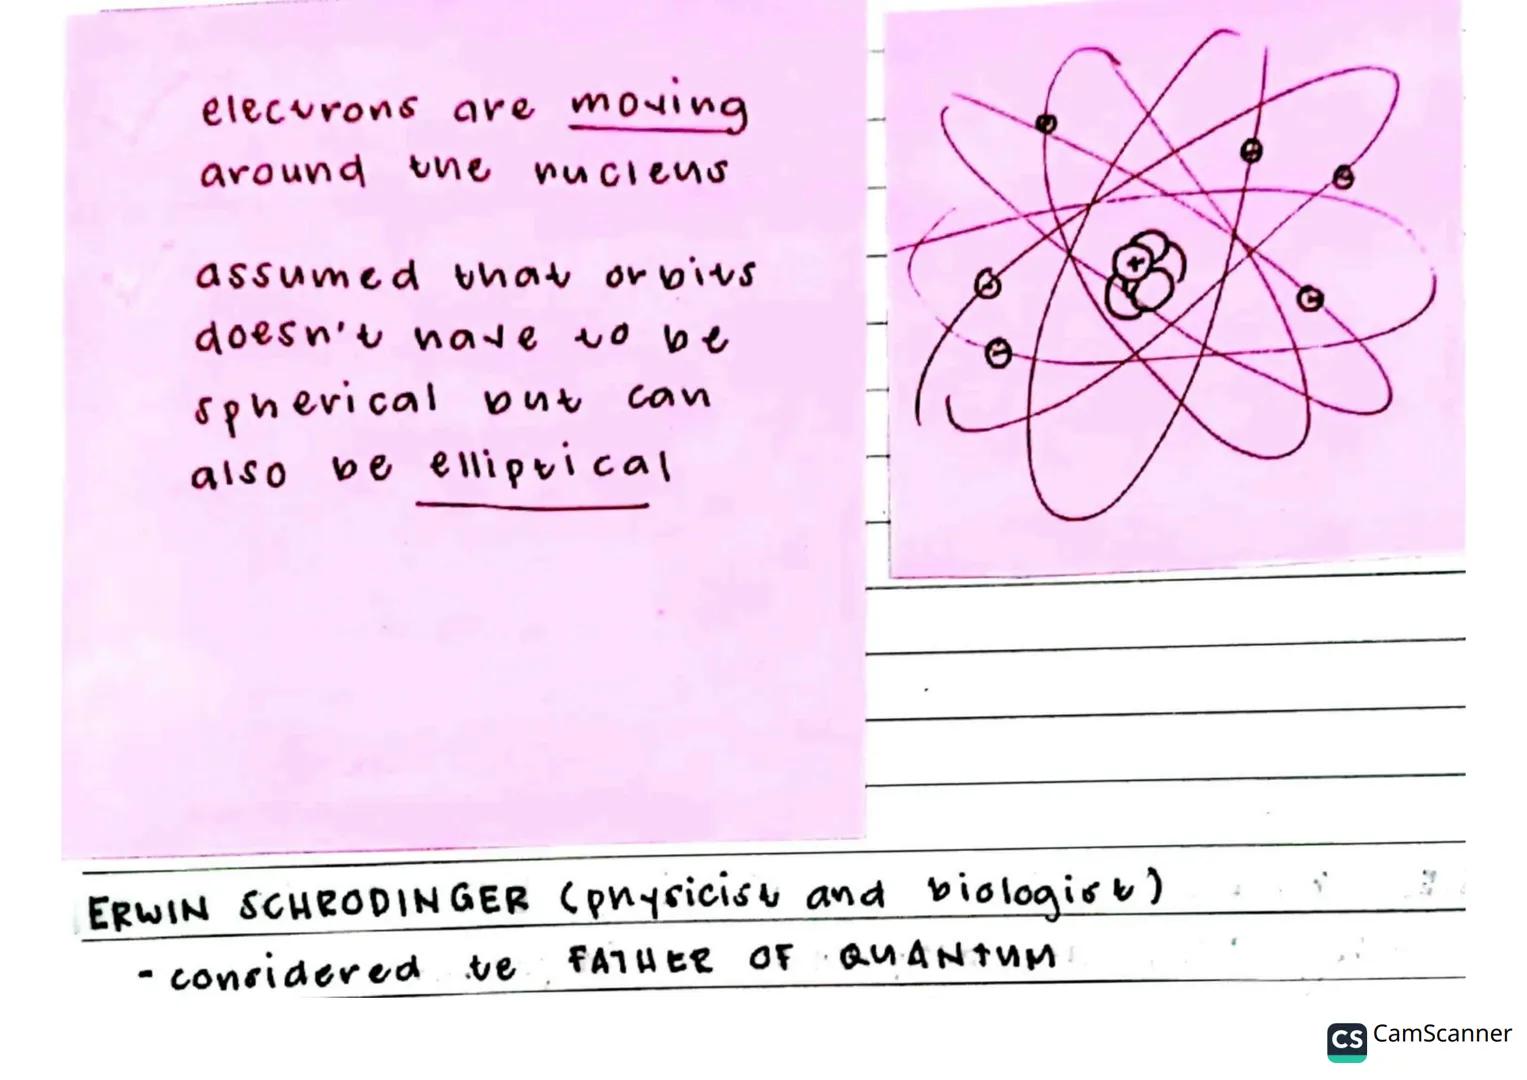 electrons are moving
around the nucleus
assumed that orbits
doesn't have to be
spherical but can
also be elliptical
+
ERWIN SCHRODINGER (physicist and biologist)
- considered te FATHER OF QUANTUM
CS CamScanner